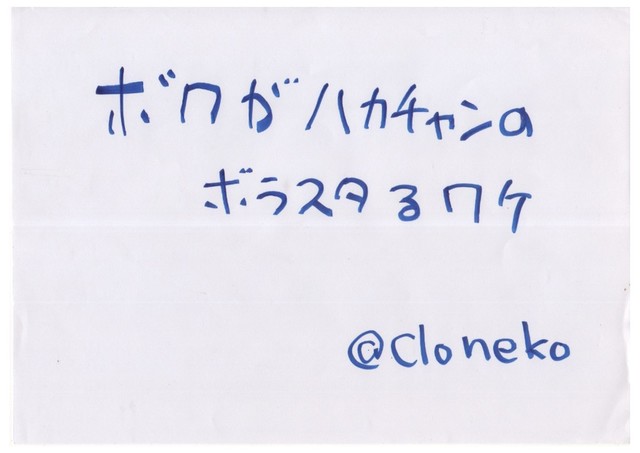 ボクがハカチャンの
ボラスタるワケ
@cloneko